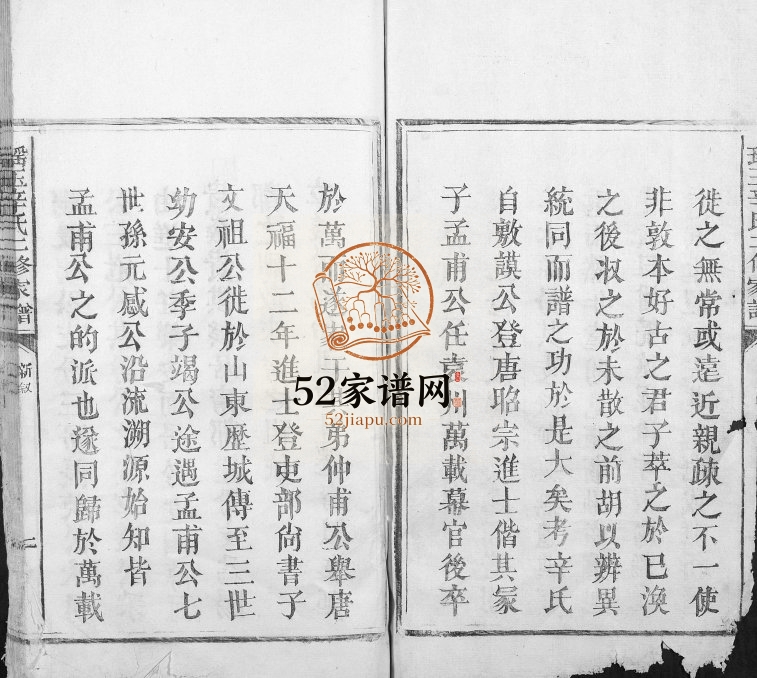 徙之無常或遠近親疎之不一使
非敦本好古之君子萃之於已渙
之後収之於未散之前胡以辨異
統同而譜之功於是大矣考辛氏
自敷謨公登唐昭宗進士偕其冢
子孟甫公任袁州萬載幕官後卒
於萬 弟仲甫公舉唐
天福十二年進士登吏部尙書子
文祖公徙於山東歷城傳至三世
幼安公季子竭公途遇孟甫公七
世孫元感公沿流溯源始知皆
孟甫公之的派也遂同歸於萬載
辛氏三修家譜
新敘
52家谱网
52jiapu.com